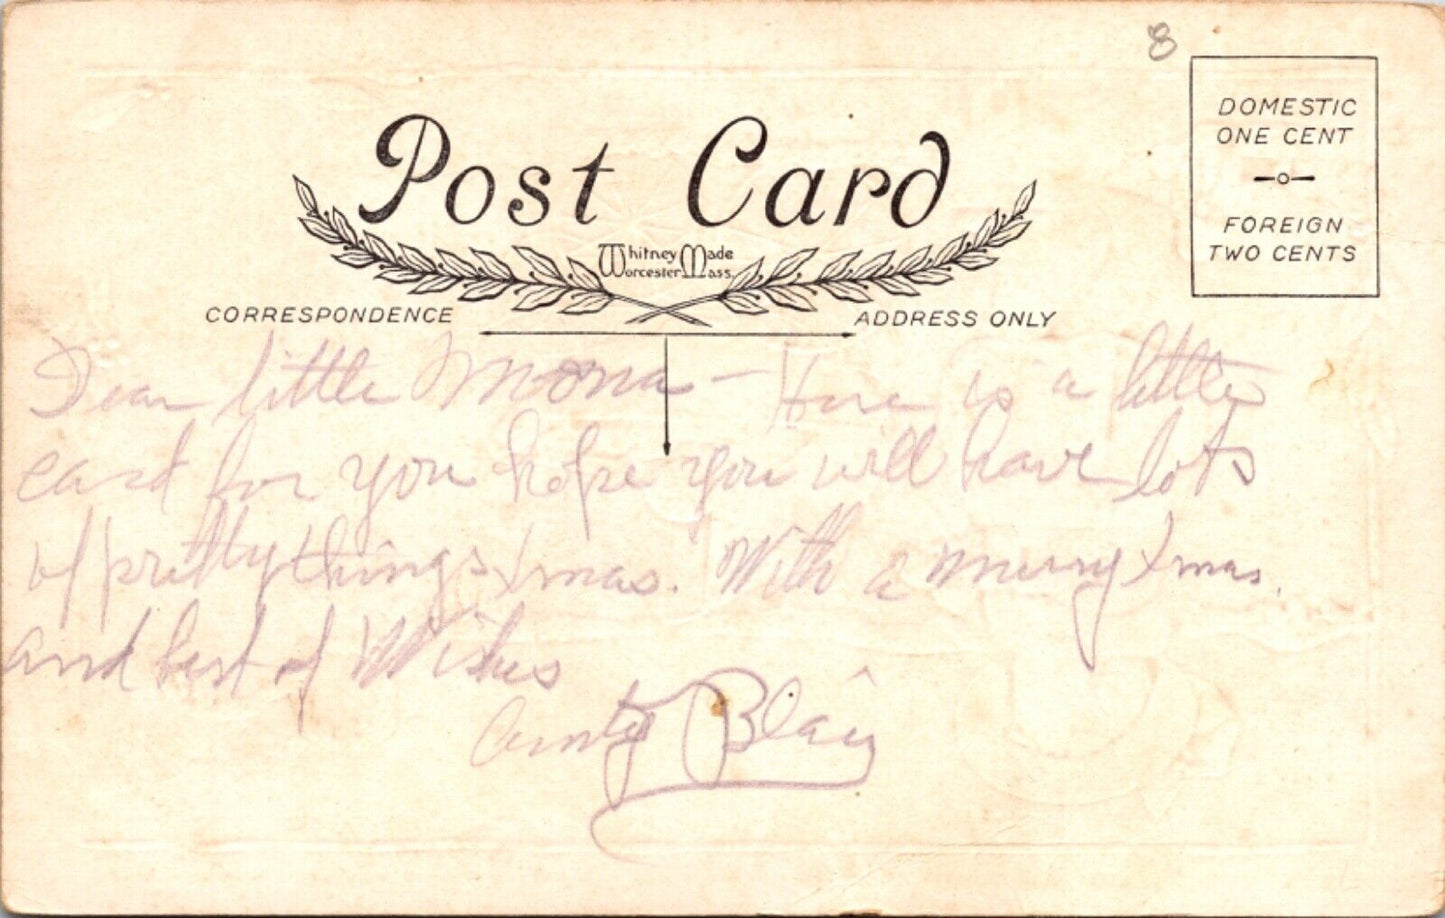 8
DOMESTIC
ONE CENT
FOREIGN
TWO CENTS
Post Card
Whitney Made
Worcester Mass.
CORRESPONDENCE
ADDRESS ONLY
Dear little Mona - Here is a little
card for you hope you will have lots
of pretty things Xmas. With a merry Xmas.
and best of Wishes
Aunty Blair